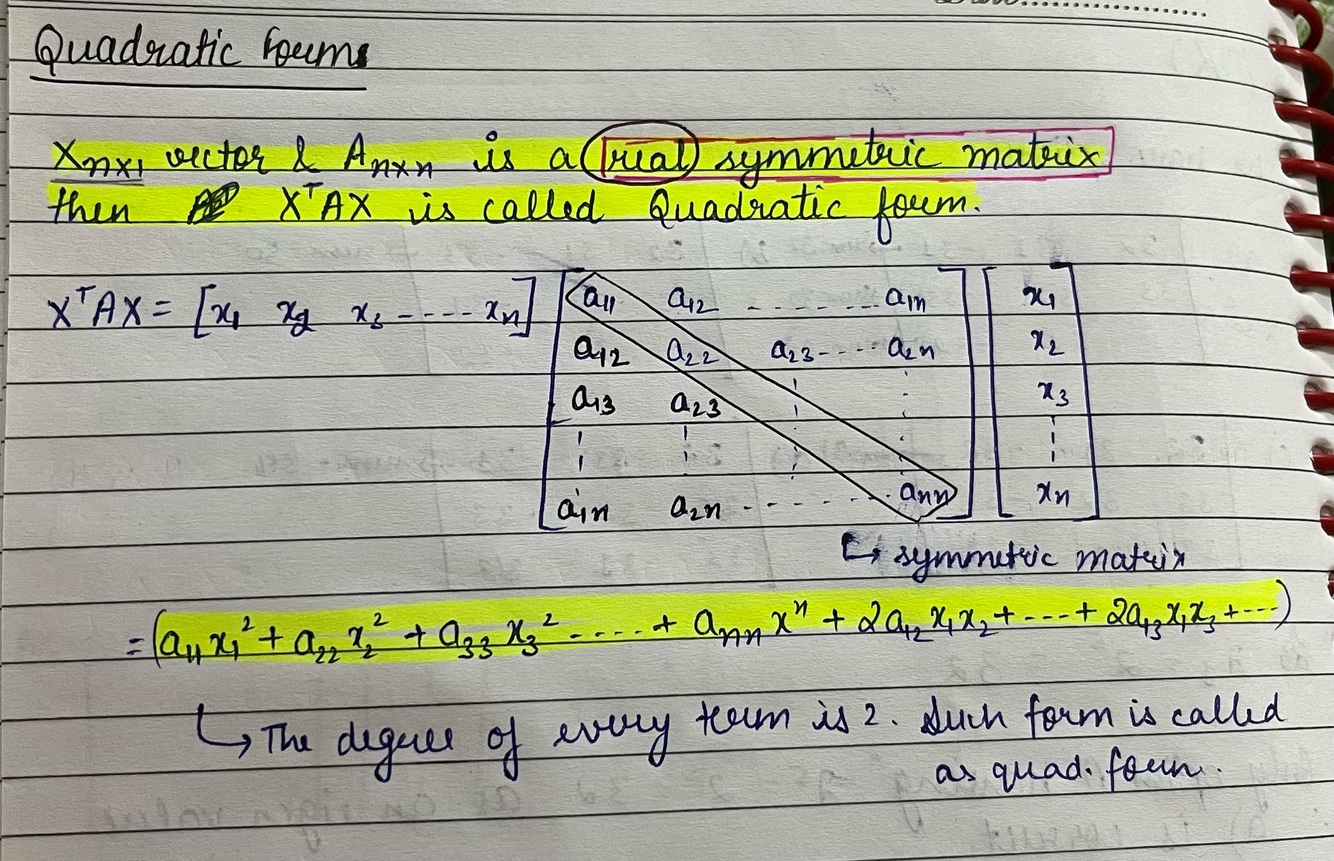 Quadratic Forms
X_{n×1} vector & A_{n×n} is a real symmetric matrix
then X^T A X is called Quadratic form.
X^T A X = [x_1 x_2 x_3 ---- x_n] [a_{11} a_{12} ------- a_{1n}] [x_1]
a_{12} a_{22} a_{23} ---- a_{2n} x_2
a_{13} a_{23} x_3
a_{1n} a_{2n} ------- a_{nn} x_n
↳ symmetric matrix
= (a_{11} x_1^2 + a_{22} x_2^2 + a_{33} x_3^2 ..... + a_{nn} x^n + 2a_{12} x_1 x_2 + ---- + 2a_{13} x_1 x_3 + ---)
↳ The degree of every term is 2. Such form is called
as quad. form.